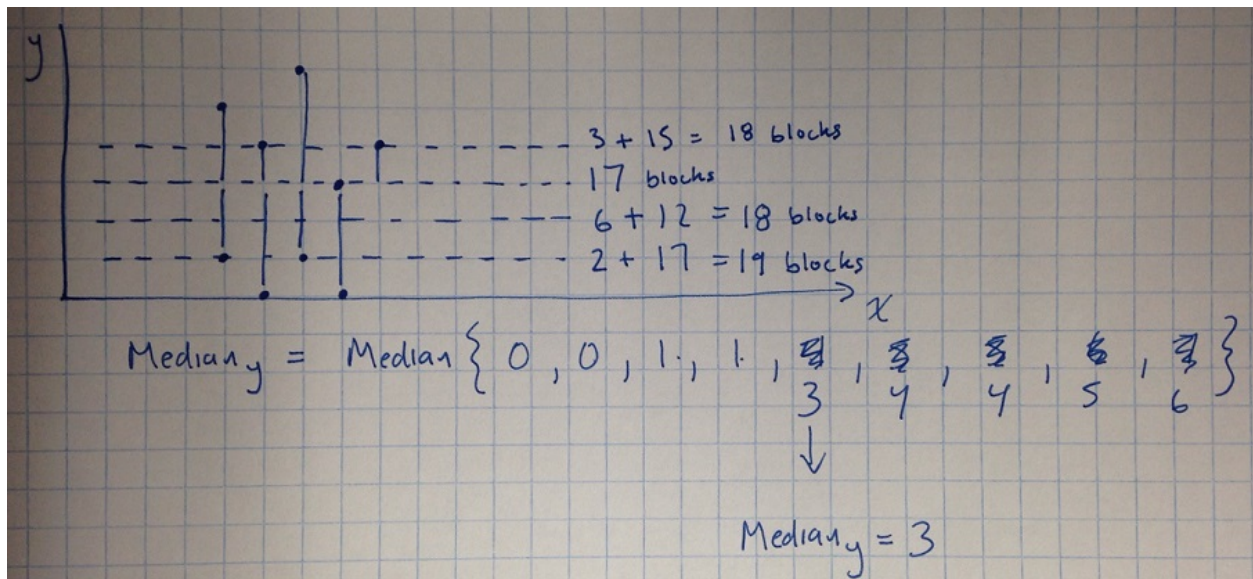 y
3 + 15 = 18 blocks
17 blocks
6 + 12 = 18 blocks
2 + 17 = 19 blocks
x
Median y = Median { 0 , 0 , 1 , 1 , , , , , }
3 4 4 5 6
Median y = 3